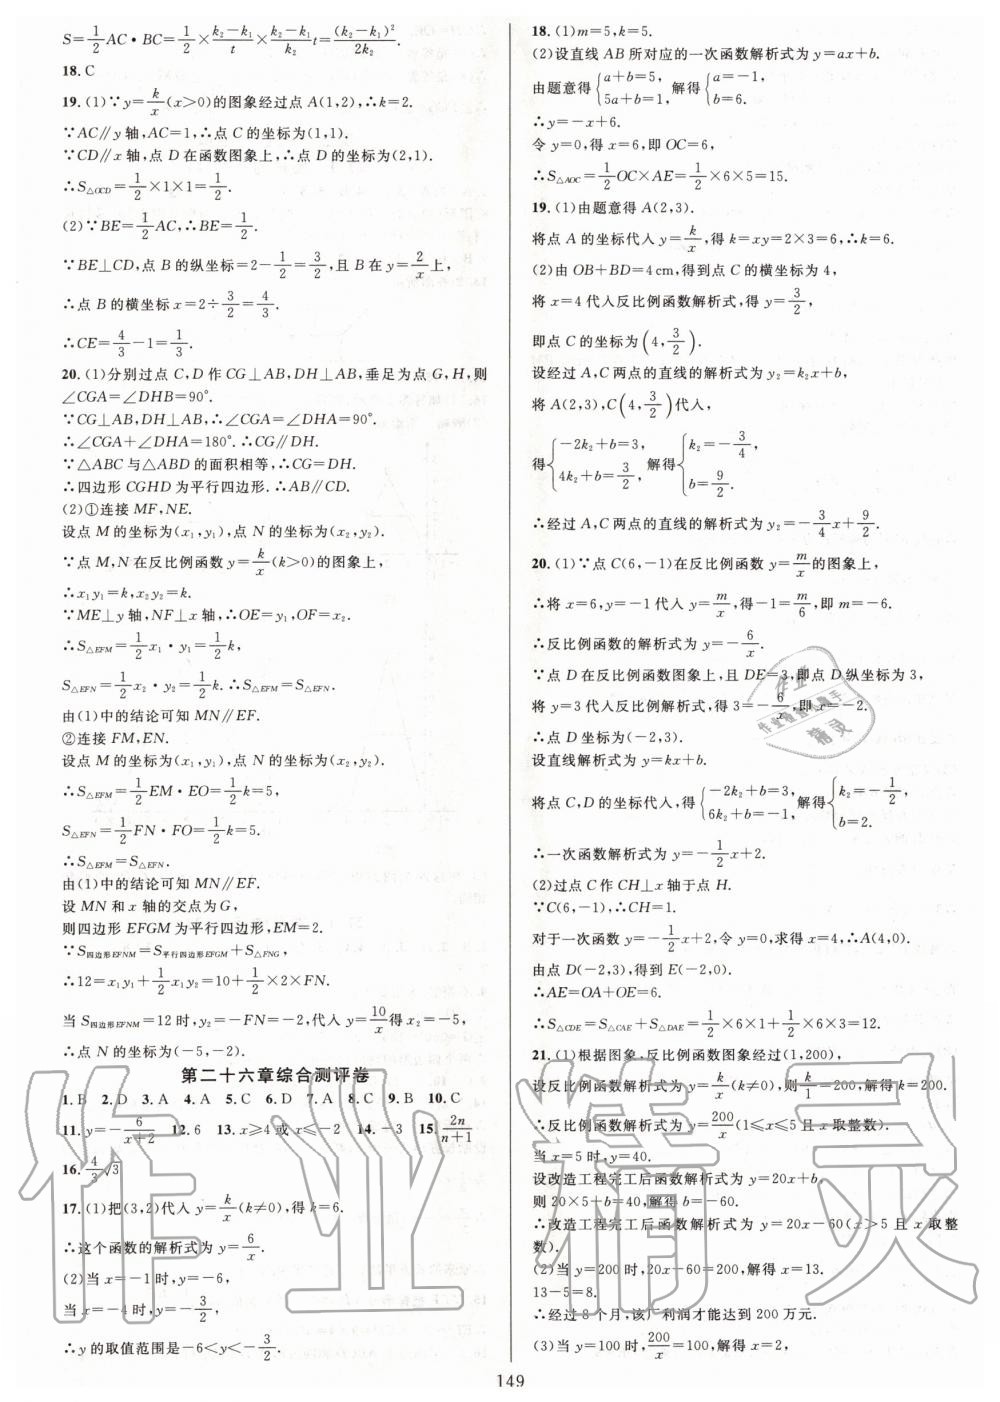 S=1/2 AC·BC=1/2×(k₂-k₁)/t×(k₂-k₁)/k₂ t=(k₂-k₁)²/2k₂.
18. C
19. (1)∵y=k/x(x>0)的图象经过点 A(1,2),∴k=2.
∵AC∥y 轴,AC=1,∴点 C 的坐标为(1,1).
∵CD∥x 轴,点 D 在函数图象上,∴点 D 的坐标为(2,1).
∴S△OCD=1/2×1×1=1/2.
(2)∵BE=1/2 AC,∴BE=1/2.
∵BE⊥CD,点 B 的纵坐标=2-1/2=3/2,且 B 在 y=2/x上,
∴点 B 的横坐标 x=2÷3/2=4/3.
∴CE=4/3-1=1/3.
20. (1)分别过点 C,D 作 CG⊥AB,DH⊥AB,垂足为点 G,H,则
∠CGA=∠DHB=90°.
∵CG⊥AB,DH⊥AB,∴∠CGA=∠DHA=90°.
∴∠CGA+∠DHA=180°.∴CG∥DH.
∵△ABC 与△ABD 的面积相等,∴CG=DH.
∴四边形 CGHD 为平行四边形.∴AB∥CD.
(2)①连接 MF,NE.
设点 M 的坐标为(x₁,y₁),点 N 的坐标为(x₂,y₂).
∵点 M,N 在反比例函数 y=k/x(k>0)的图象上,
∴x₁y₁=k,x₂y₂=k.
∵ME⊥y 轴,NF⊥x 轴,∴OE=y₁,OF=x₂.
∴S△EFM=1/2 x₁·y₁=1/2 k,
S△EFN=1/2 x₂·y₂=1/2 k.∴S△EFM=S△EFN.
由(1)中的结论可知 MN∥EF.
②连接 FM,EN.
设点 M 的坐标为(x₁,y₁),点 N 的坐标为(x₂,y₂).
∴S△EFM=1/2 EM·EO=1/2 k=5,
S△EFN=1/2 FN·FO=1/2 k=5.
∴S△EFM=S△EFN.
由(1)中的结论可知 MN∥EF.
设 MN 和 x 轴的交点为 G,
则四边形 EFGM 为平行四边形,EM=2.
∵S四边形EFNM=S平行四边形EFGM+S△FNG,
∴12=x₁y₁+1/2 x₁y₂=10+1/2×2×FN.
当 S四边形EFNM=12 时,y₂=-FN=-2,代入 y=10/x得 x₂=-5,
∴点 N 的坐标为(-5,-2).
第二十六章综合测评卷
1. B 2. D 3. A 4. A 5. C 6. D 7. A 8. C 9. B 10. C
11. y=-6/(x+2) 12. 6 13. x≥4 或 x≤-2 14. -3 15. 2n/(n+1)
16. 4/3 √3
17. (1)把(3,2)代入 y=k/x(k≠0),得 k=6.
∴这个函数的解析式为 y=6/x.
(2)当 x=-1时,y=-6,
当 x=-4时,y=-3/2,
∴y 的取值范围是-6<y<-3/2.
18. (1)m=5,k=5.
(2)设直线 AB 所对应的一次函数解析式为 y=ax+b.
由题意得{a+b=5, 5a+b=1, 解得{a=-1, b=6.
∴y=-x+6.
令 y=0,得 x=6,即 OC=6,
∴S△AOC=1/2 OC×AE=1/2×6×5=15.
19. (1)由题意得 A(2,3).
将点 A 的坐标代入 y=k/x,得 k=xy=2×3=6,∴k=6.
(2)由 OB+BD=4 cm,得到点 C 的横坐标为 4,
将 x=4 代入反比例函数解析式,得 y=3/2,
即点 C 的坐标为(4,3/2).
设经过 A,C 两点的直线的解析式为 y₂=k₂x+b,
将 A(2,3),C(4,3/2)代入,
得{-2k₂+b=3, 4k₂+b=3/2, 解得{k₂=-3/4, b=9/2.
∴经过 A,C 两点的直线的解析式为 y₂=-3/4 x+9/2.
20. (1)∵点 C(6,-1)在反比例函数 y=m/x的图象上,
∴将 x=6,y=-1 代入 y=m/x,得-1=m/6,即 m=-6.
∴反比例函数的解析式为 y=-6/x.
∵点 D 在反比例函数图象上,且 DE=3,即点 D 纵坐标为 3,
将 y=3 代入反比例解析式,得 3=-6/x,即 x=-2.
∴点 D 坐标为(-2,3).
设直线解析式为 y=kx+b.
将点 C,D 的坐标代入,得{-2k₂+b=3, 6k₂+b=-1, 解得{k₂=-1/2, b=2.
∴一次函数解析式为 y=-1/2 x+2.
(2)过点 C 作 CH⊥x 轴于点 H.
∵C(6,-1),∴CH=1.
对于一次函数 y=-1/2 x+2,令 y=0,求得 x=4,∴A(4,0).
由点 D(-2,3),得到 E(-2,0).
∴AE=OA+OE=6.
∴S△CDE=S△CAE+S△DAE=1/2×6×1+1/2×6×3=12.
21. (1)根据图象,反比例函数图象经过(1,200),
设反比例函数解析式为 y=k/x(k≠0),则k/1=200,解得 k=200,
∴反比例函数解析式为 y=200/x(1≤x≤5 且 x 取整数).
当 x=5 时,y=40.
设改造工程完工后函数解析式为 y=20x+b,
则 20×5+b=40,解得 b=-60.
∴改造工程完工后函数解析式为 y=20x-60(x>5 且 x 取整
数).
(2)当 y=200时,20x-60=200,解得 x=13.
13-5=8.
∴经过 8 个月,该厂利润才能达到 200 万元.
(3)当 y=100 时,200/x=100,解得 x=2,
149
作业
作业检查小帮手
精灵
作业精灵